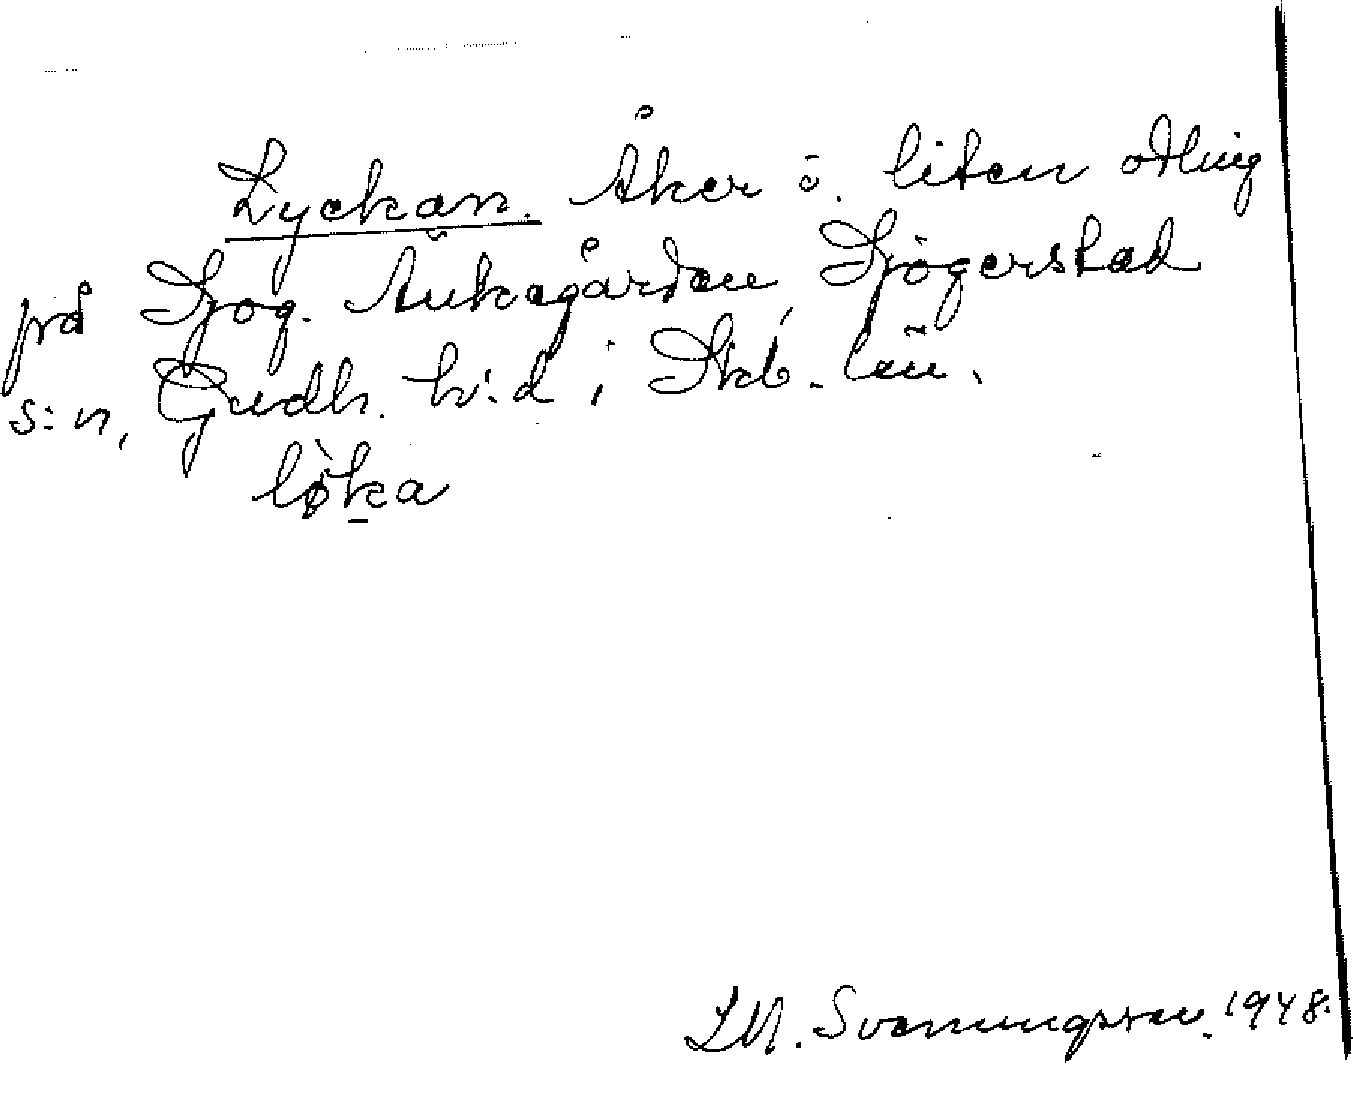 Lyckan. Åker o. liten odling
på Sjog. Änkagården, Sjögerstad
s:n, Gudh. h:d i Skb. län.
lø̀ka
L.M. Svenungsson. 1948.